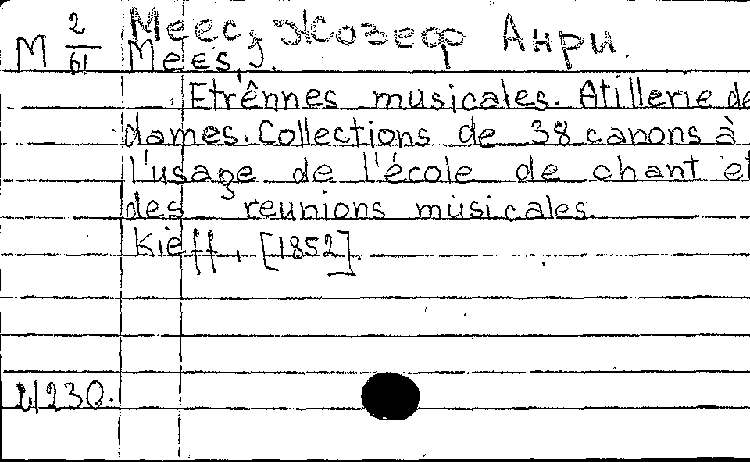 M 2/61 Меес, Жозеф Анри.
Mees, J.
Etrênnes musicales. Atillerie de
dames. Collections de 38 canons à
l'usage de l'école de chant et
des reunions musicales.
Kieff, [1852].
230.